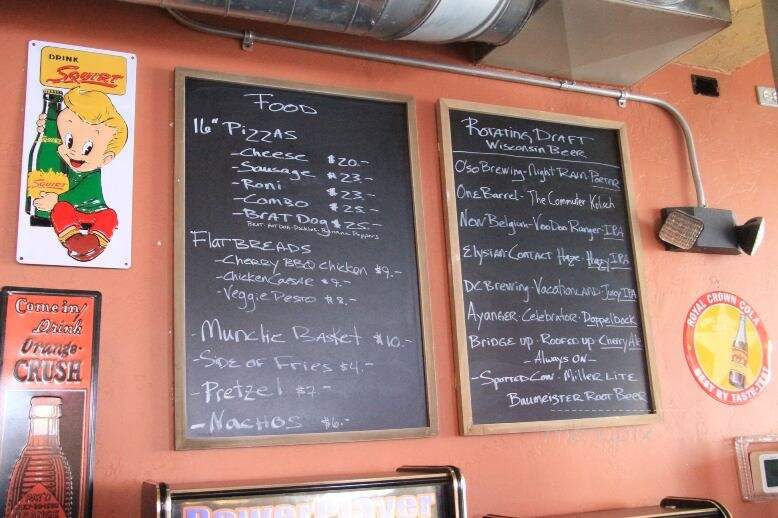 DRINK
SQUIRT
SQUIRT
Come in/
Drink
Orange-
CRUSH
FOOD
16" PIZZAS
-Cheese $20.-
-Sausage $23.-
-Roni $23.-
-COMBO $25.-
-BRAT Dog $25.-
FlatBREADS
-Cherry BBQ Chicken $9.-
-Chicken Caesar $9.-
-Veggie Pesto $8.-
-Munchie Basket $10.-
-SIDE OF Fries $4.-
-Pretzel $7.-
-NACHOS $6.-
ROTATING DRAFT
WISCONSIN BEER
O'so Brewing-Night RAIN-PORTER
One BARREL-The Commuter Kölsch
New Belgium-VooDoo Ranger-IPA
Elysian-Contact Haze-Hazy IPA
DC Brewing-VACATIONLAND-Juicy IPA
AYANGER-Celebrator-Doppelbock
BRIDGE UP-ROOFED UP Cherry Ale
-Always ON-
-Spotted Cow-MILLER LITE
BAUMEISTER ROOT BEER
ROYAL CROWN COLA
BEST BY TASTE-TEST
PowerPlayer